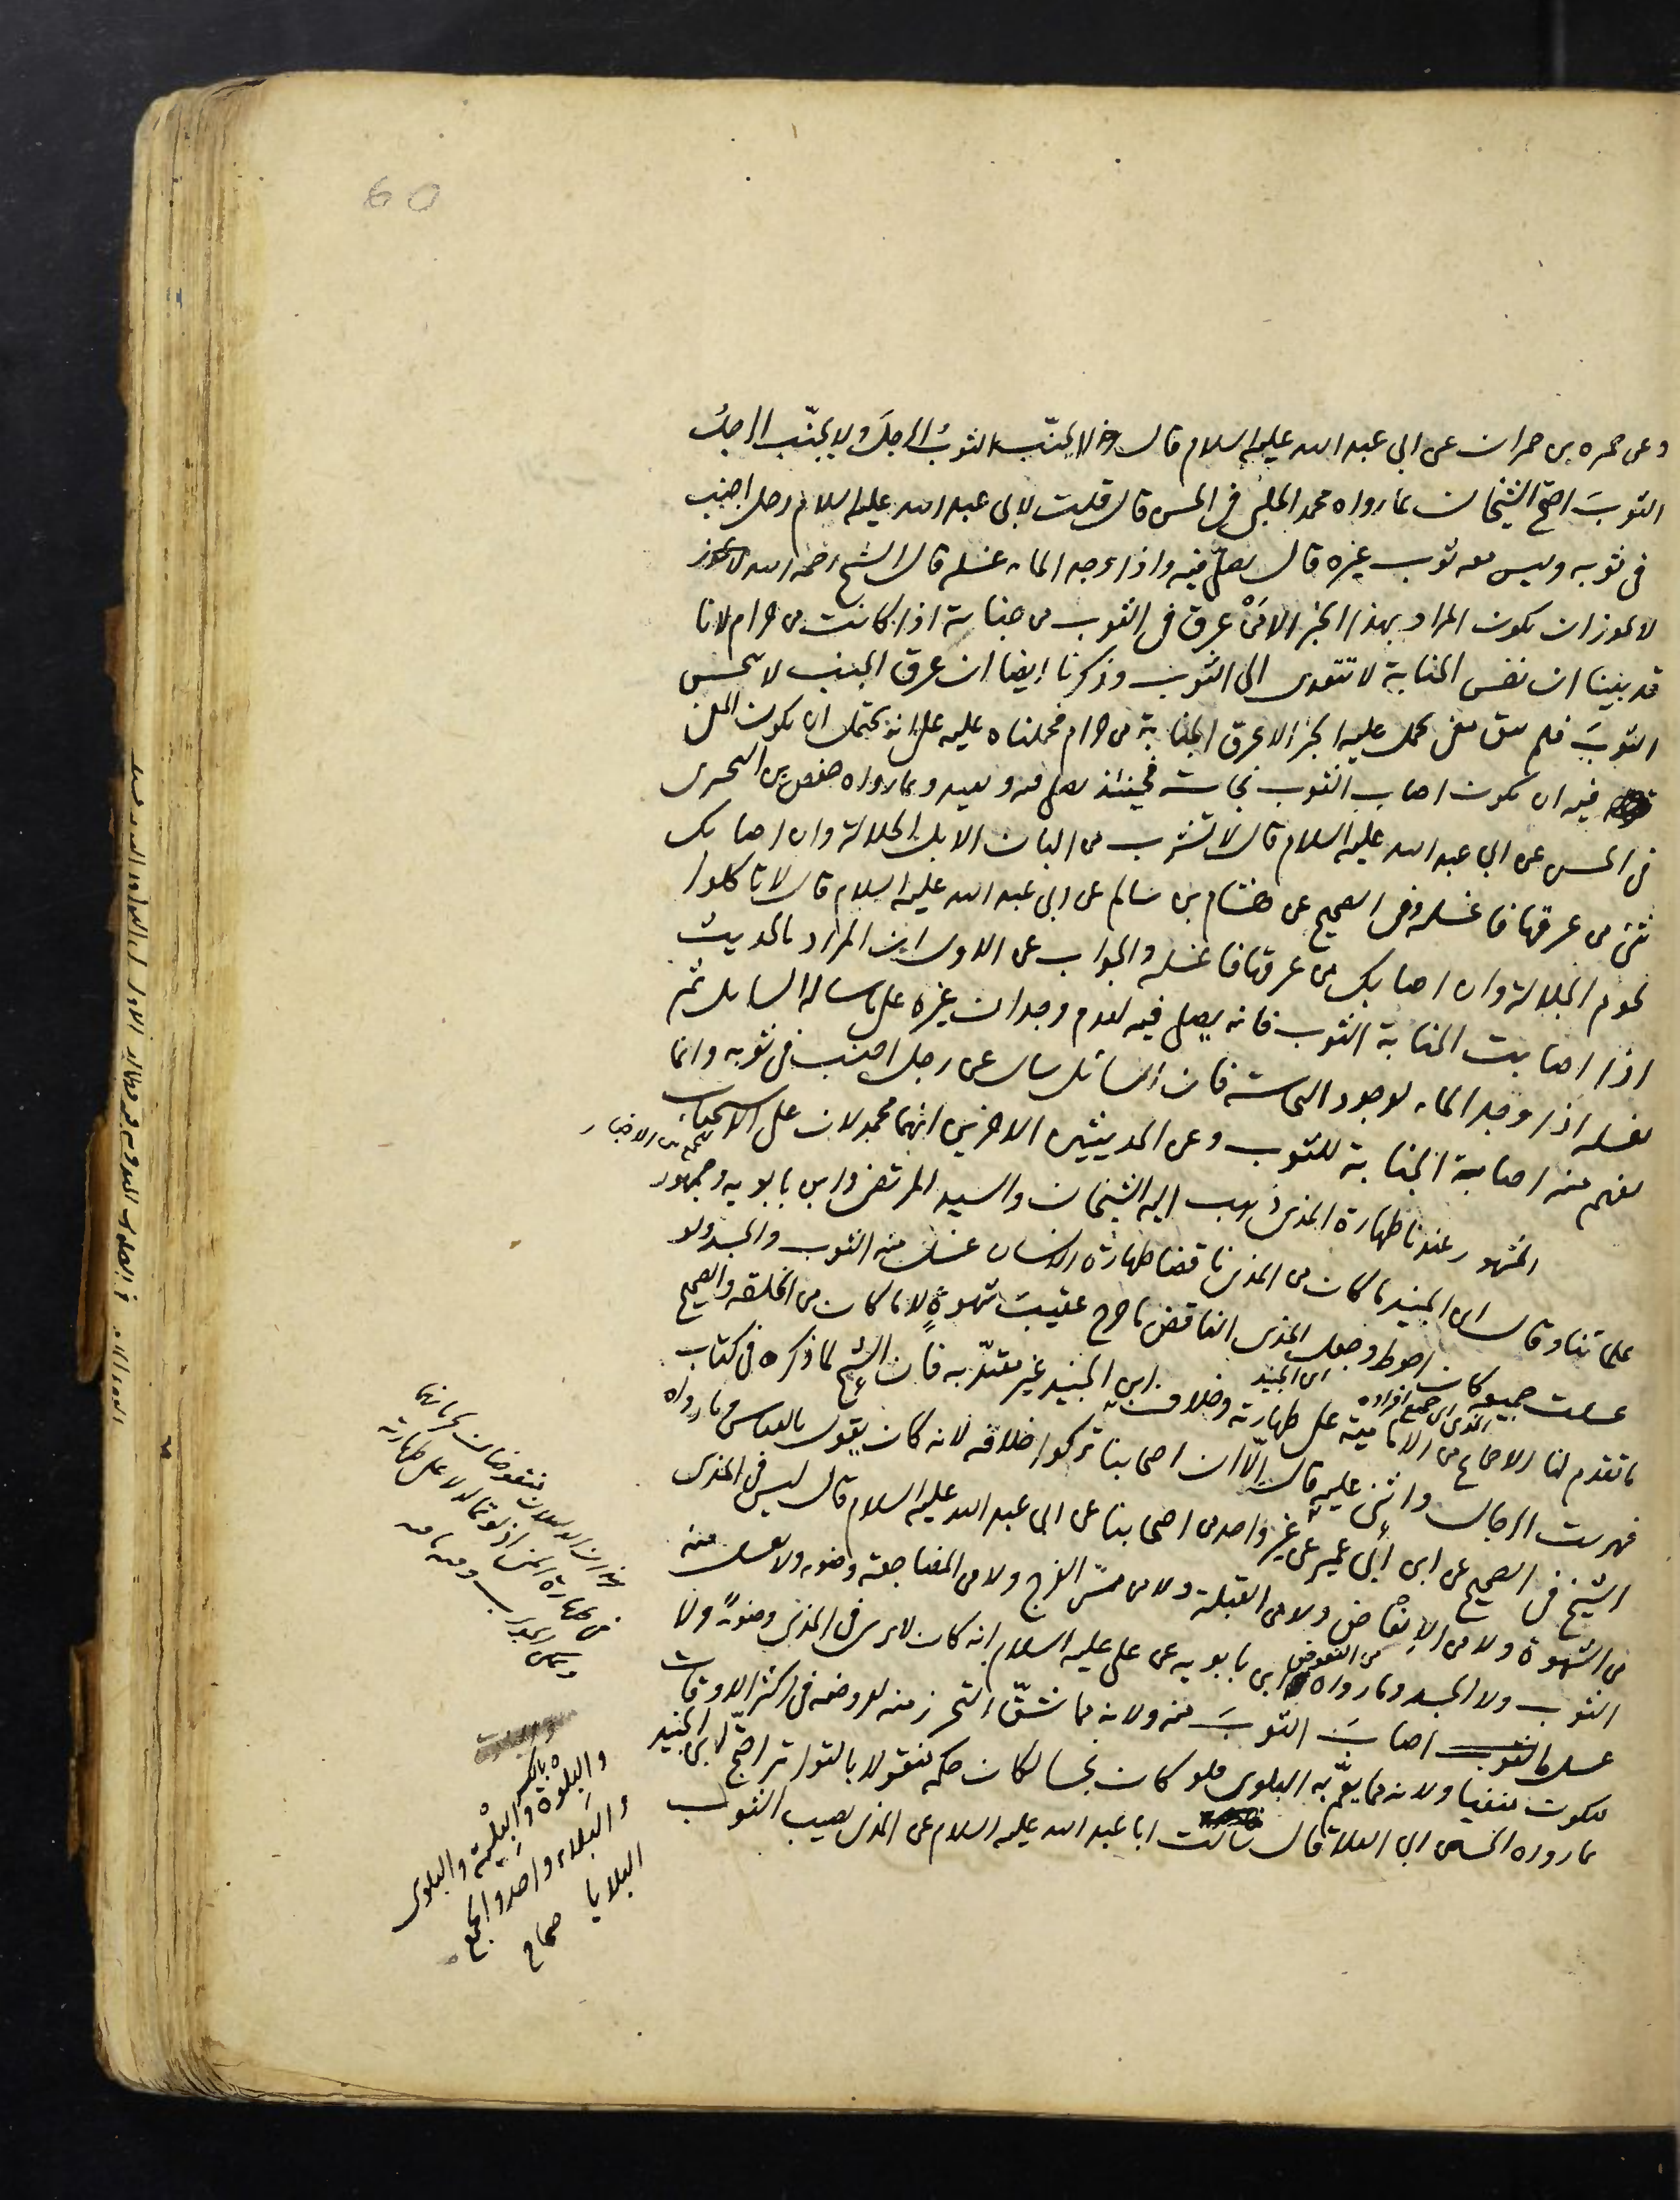 60
وعن حمزه بن حمران عن ابى عبد الله عليه السلام قال لا يجنّب الثوبُ الرجلَ ولا يجنّب الرجلُ
الثوبَ احتج الشيخان بما رواه محمد الحلبى فى الحسن قال قلت لابى عبد الله عليه السلام رجل اجنب
فى ثوبه وليس معه ثوب غيره قال يصلّى فيه واذا وجد الماء غسله قال الشيخ رحمه الله لا يجوز
لا يجوز ان يكون المراد بهذا الخبر الا مَنْ عرق فى الثوب من جنابة اذا كانت من حرام لانا
قد بيّنا ان نفس الجنابة لا تتعدى الى الثوب وذكرنا ايضا ان عرق الجنب لا ينجس
الثوبَ فلم يبق معنى يحمل عليه الخبر الا عرق الجنابة من حرام فحملناه عليه على انه يحتمل ان يكون المعنى
فيه ان يكون اصاب الثوب نجاسة فحينئذ يصلى فيه ويعيد وبما رواه حفص بن البخترى
فى الحسن عن ابى عبد الله عليه السلام قال لا تشرب من البان الابل الجلالة وان اصابك
شئ من عرقها فاغسله وفى الصحيح عن هشام بن سالم عن ابى عبد الله عليه السلام قال لا تاكلوا
لحوم الجلالة وان اصابك من عرقها فاغسله والجواب عن الاول ان المراد بالحديث
اذا اصابت الجنابة الثوب فانه يصلى فيه لعدم وجدان غيره على ما ساله السايل ثم
يغسله اذا وجد الماء لوجود النجاسة فان السائل سال عن رجل اجنب فى ثوبه وانما
يفهم منه اصابة الجنابة للثوب وعن الحديثين الاخيرين انهما محمولان على الاستحباب
جمعا بين الاخبار
المشهور عندنا طهارة المذى ذهب اليه الشيخان والسيد المرتضى وابن بابويه وجمهور
علمائنا وقال ابن الجنيد ما كان من المذى ناقضا طهارة الانسان غسل منه الثوب والجسد ولو
غسلت جميعه كان احوط وجعل المذى الناقض ما خرج عقيبَ شهوةٍ لا ما كان من الخلقة والصحيح
المذى اى جميع افراده
اى ابن الجنيد
ما تقدم لنا الاجماع من الامامية على طهارته وخلاف ابن الجنيد غير معتدّ به فان الشيخ لما ذكره فى كتاب
فهرست الرجال واثنى عليه قال الّا ان اصحابنا تركوا خلافه لانه كان يقول بالقياس وما رواه
الشيخ فى الصحيح عن ابن أبى عمير عن غير واحد من اصحابنا عن ابى عبد الله عليه السلام قال ليس فى المذى
من الشهوة ولا من الانعاض ولا من القبلة ولا من مسّ الفرج ولا من المضاجعة وضوء ولا يغسل منه
الثوب ولا الجسد وما رواه ابن بابويه عن على عليه السلام انه كان لا يرى فى المذى وضوءً ولا
غسل ما اصابَ الثوبَ منه ولانه مما يشقّ التحرز منه لعروضه فى اكثر الاوقات
فيكون منفيا ولانه مما يعمّ به البلوى فلو كان نجسا لكان حكمه منقولا بالتواتر احتجّ ابن الجنيد
بما رواه الحسين بن ابى العلا قال سالت ابا عبد الله عليه السلام عن المذى يصيب الثوب
والبلوة بالكسر
والبِلْوة والبلية والبلوى
والبلاء واحد والجمع
البلايا صحاح